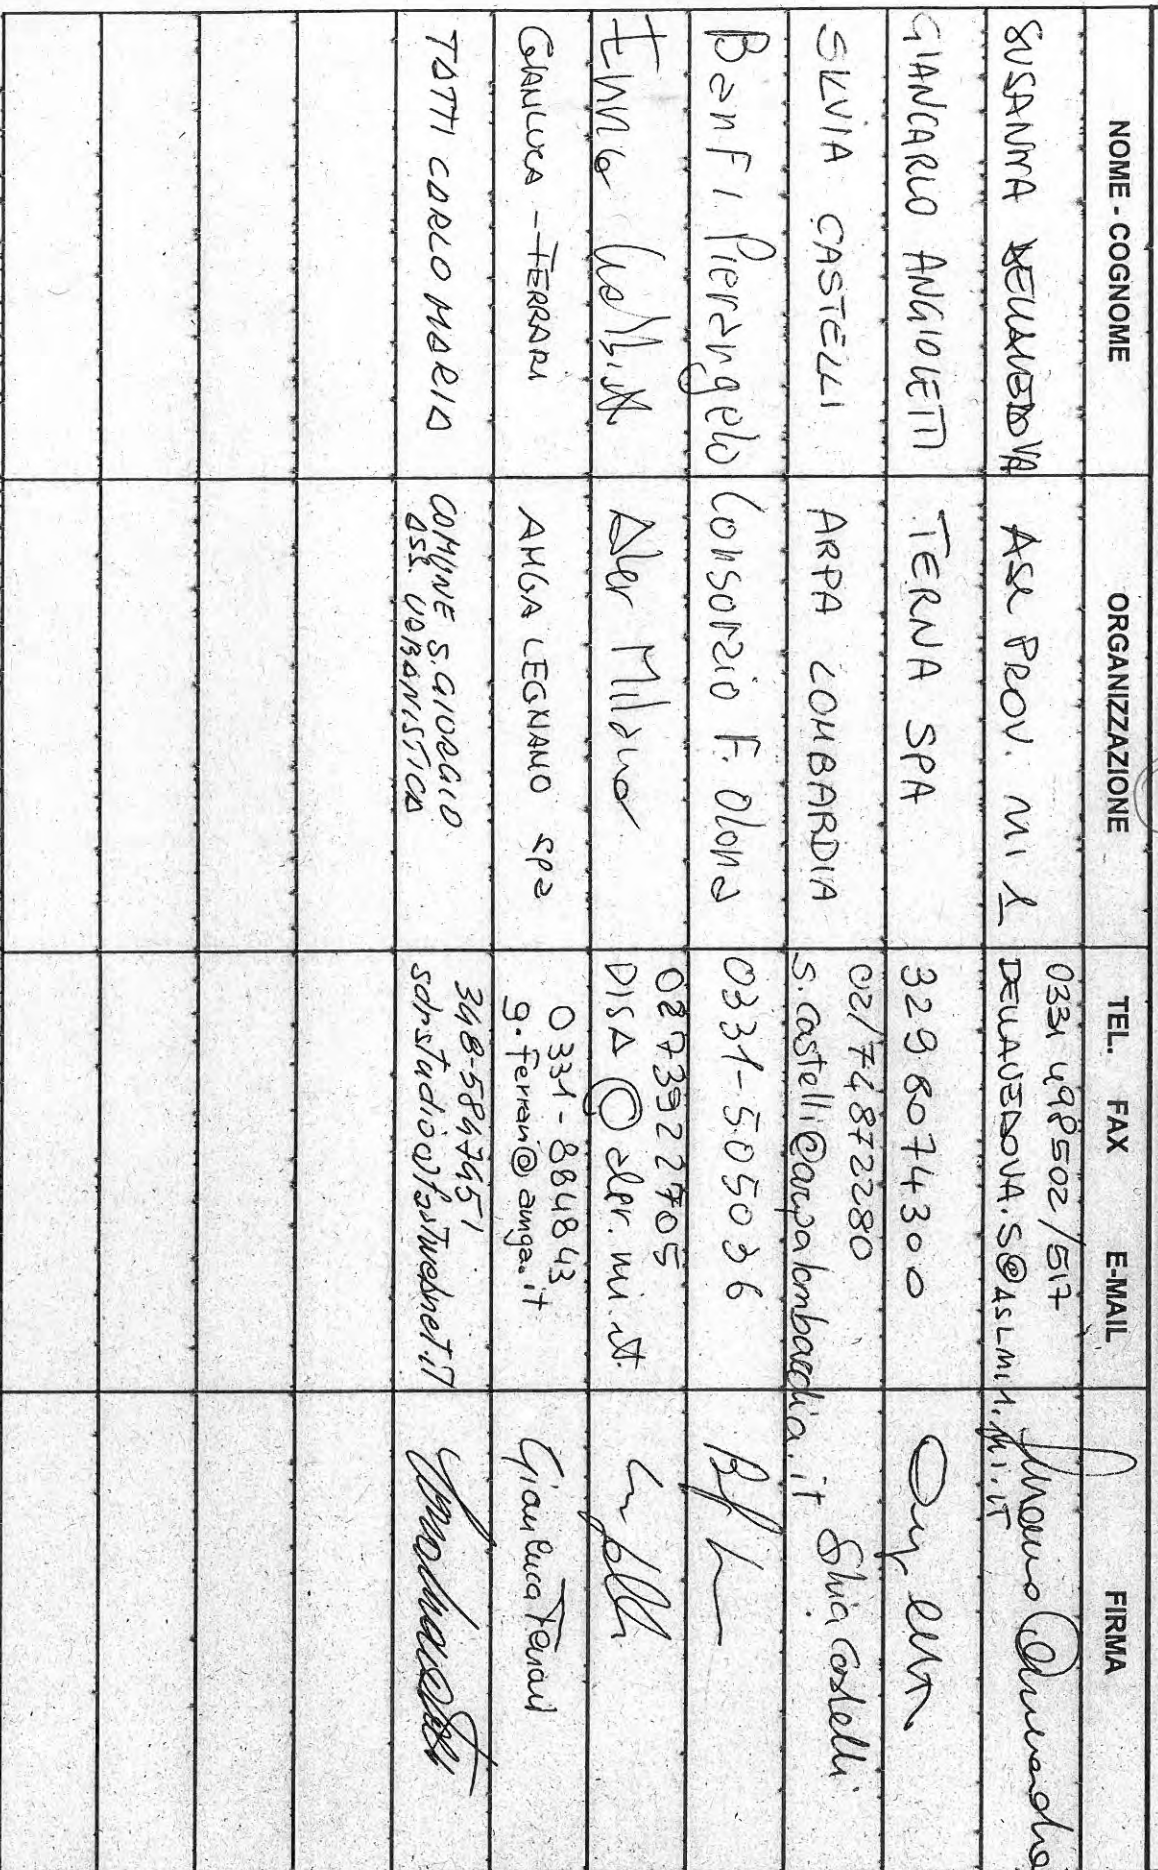 NOME - COGNOME ORGANIZZAZIONE TEL. FAX E-MAIL FIRMA
SUSANNA DELLAVEDOVA ASL PROV. MI 1 0331 498502/517
DELLAVEDOVA.S@ASLMI1.MI.IT
GIANCARLO ANGIOLETTI TERNA SPA 329 8074300
SILVIA CASTELLI ARPA LOMBARDIA 02/74872280
s.castelli@arpalombardia.it Silvia Castelli
Banfi Pierangelo Consorzio F. Olona 0331-505036
Aler Milano 0273922705
DISA@aler.mi.it
GIANLUCA FERRARI AMGA LEGNANO spa 0331-884843
g.ferrari@amga.it Gianluca Ferrari
TATTI CARLO MARIA COMUNE S. GIORGIO
ASS. URBANISTICA
sdrstudio@fastwebnet.it